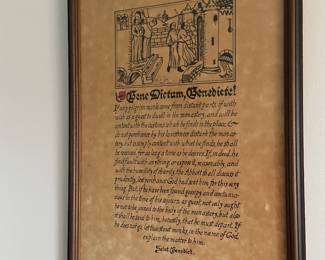 Bene Dictum, Benedicte!
If any pilgrim monk come from distant parts, if with
wish as a guest to dwell in the monastery, and will be
content with the customs which he finds in the place, &
do not perchance by his lavishness disturb the mon-
astery, but is simply content with what he finds, he shall
be received, for as long a time as he desires. If, indeed, he
find fault with anything, or expose it, reasonably, and
with the humility of charity, the Abbott shall discuss it
prudently, lest perchance God had sent him for this very
thing. But, if he have been found gossipy and contuma-
cious in the time of his sojourn as guest, not only ought
he not to be joined to the body of the monastery, but also
it shall be said to him, honestly, that he must depart. If
he does not go, let two stout monks, in the name of God,
explain the matter to him.
Saint Benedict.